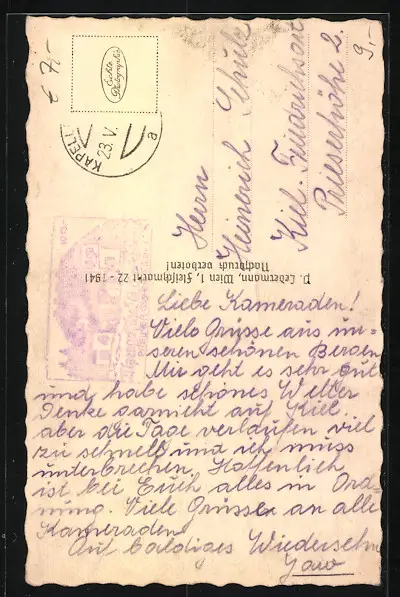 € 7,-
9,-
Echte Photographie
KAPELL
23. V.
a
Herrn
Heinrich Schulz
Kiel-Friedrichsort
Prieserhöhe 2.
P. Ledermann, Wien 1, Fleischmarkt 22 - 1941
Nachdruck verboten!
Liebe Kameraden!
Viele Grüsse aus un-
seren schönen Bergen
Mir geht es sehr gut
und habe schönes Wetter
Denke garnicht auf Kiel.
aber die Tage verlaufen viel
zu schnell und ich muss
unterbrechen. Hoffenlich
ist bei Euch alles in Ord-
nung. Viele Grüsse an alle
Kameraden
Auf baldiges Wiedersehn